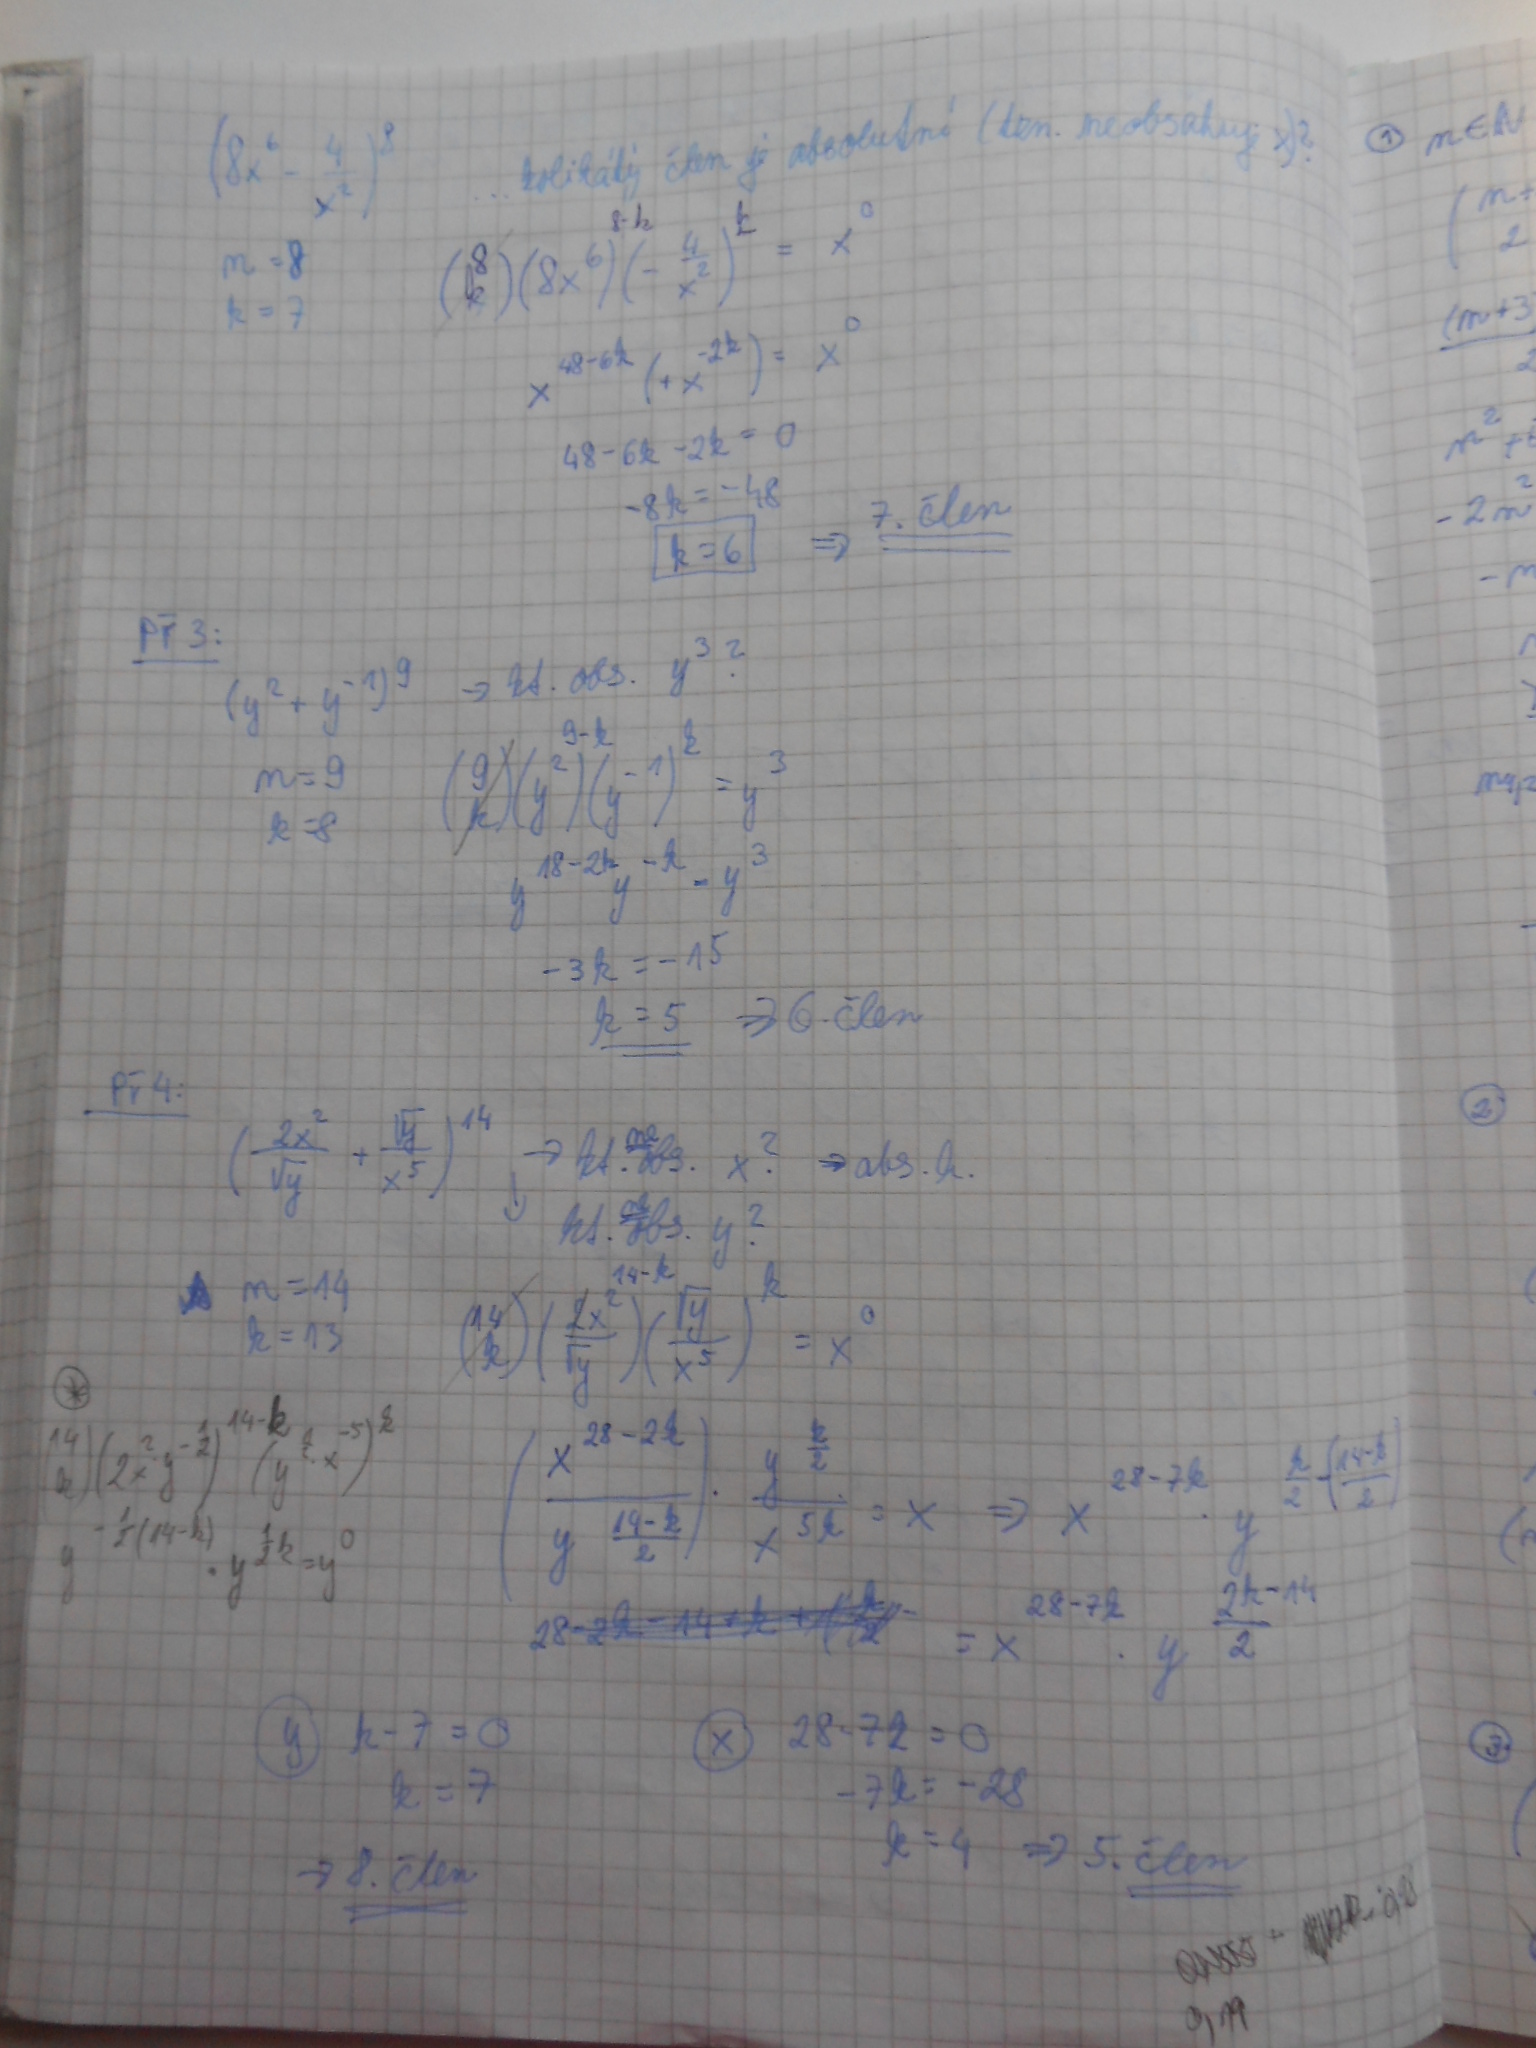 (8x⁶ - 4/x²)⁸ ... kolikátý člen je absolutní (ten. neobsahuj. x)?
n = 8
k = 7
(8 k)(8x⁶)^(8-k) (- 4/x²)^k = x⁰
x^(48-6k) (+x^(-2k)) = x⁰
48-6k-2k = 0
-8k = -48
k = 6 ⇒ 7. člen
Př 3:
(y² + y⁻¹)⁹ → kt. obs. y³?
n = 9
k = 8
(9 k)(y²)^(9-k) (y⁻¹)^k = y³
y^(18-2k) y^(-k) = y³
-3k = -15
k = 5 ⇒ 6. člen
Př 4:
(2x²/√y + √y/x⁵)¹⁴ → kt. neobs. x? → abs. k.
↓ kt. neobs. y?
n = 14
k = 13
(14 k)(2x²/√y)^(14-k) (√y/x⁵)^k = x⁰
(14 k)(2x²·y^(-1/2))^(14-k) (y^(1/2)·x⁻⁵)^k
y^(-1/2(14-k)) · y^(1/2k) = y⁰
(x^(28-2k)/y^((14-k)/2)) · y^(k/2)/x^(5k) = x ⇒ x^(28-7k) · y^(k/2-((14-k)/2))
= x^(28-7k) · y^((2k-14)/2)
y k-7 = 0
k = 7
→ 8. člen
x 28-7k = 0
-7k = -28
k = 4 ⇒ 5. člen
① n∈N
②
③